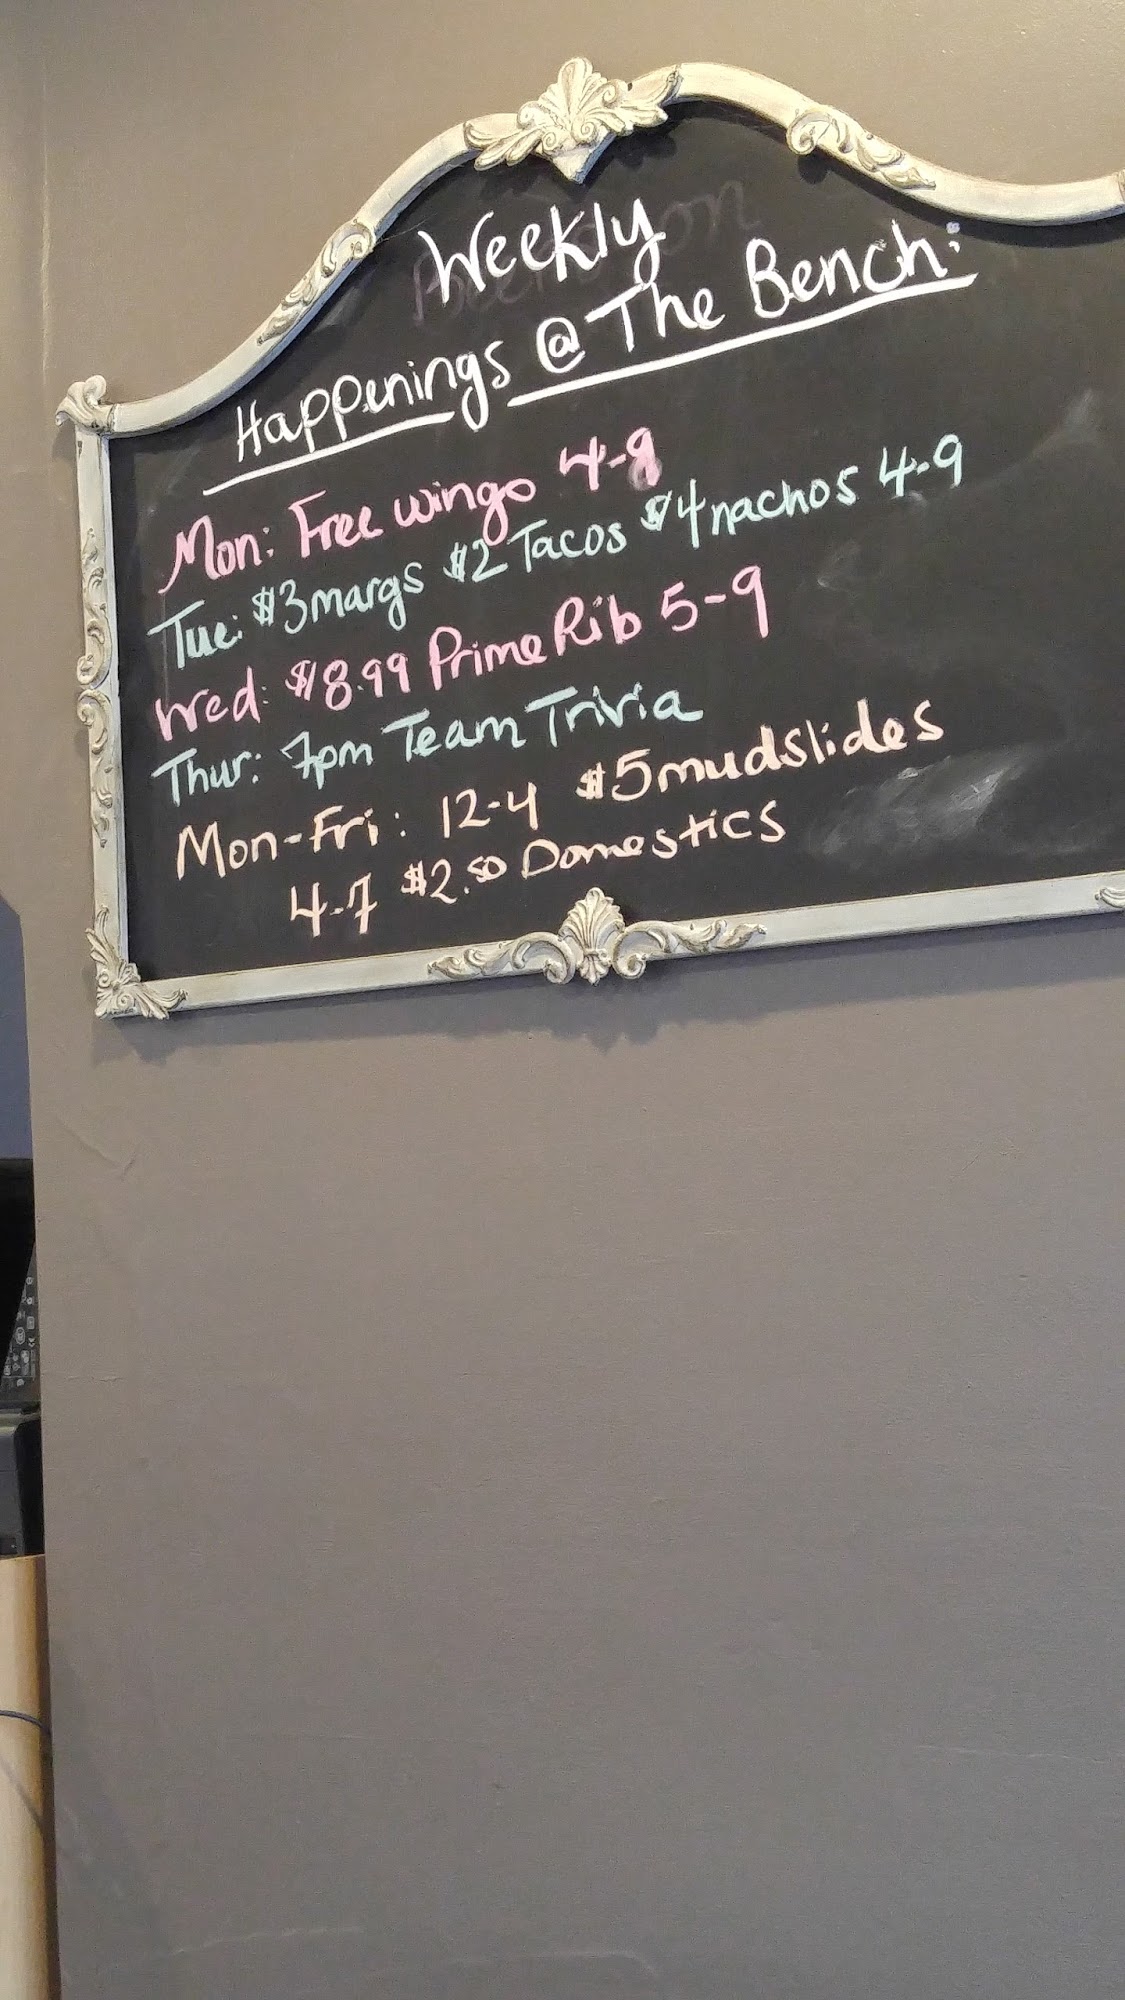 Weekly
Happenings @ The Bench:
Mon: Free wingo 4-8
Tue: $3 margs $2 Tacos $4 nachos 4-9
Wed: $8.99 Prime Rib 5-9
Thur: 7pm Team Trivia
Mon-Fri: 12-4 $5 mudslides
4-7 $2.50 Domestics